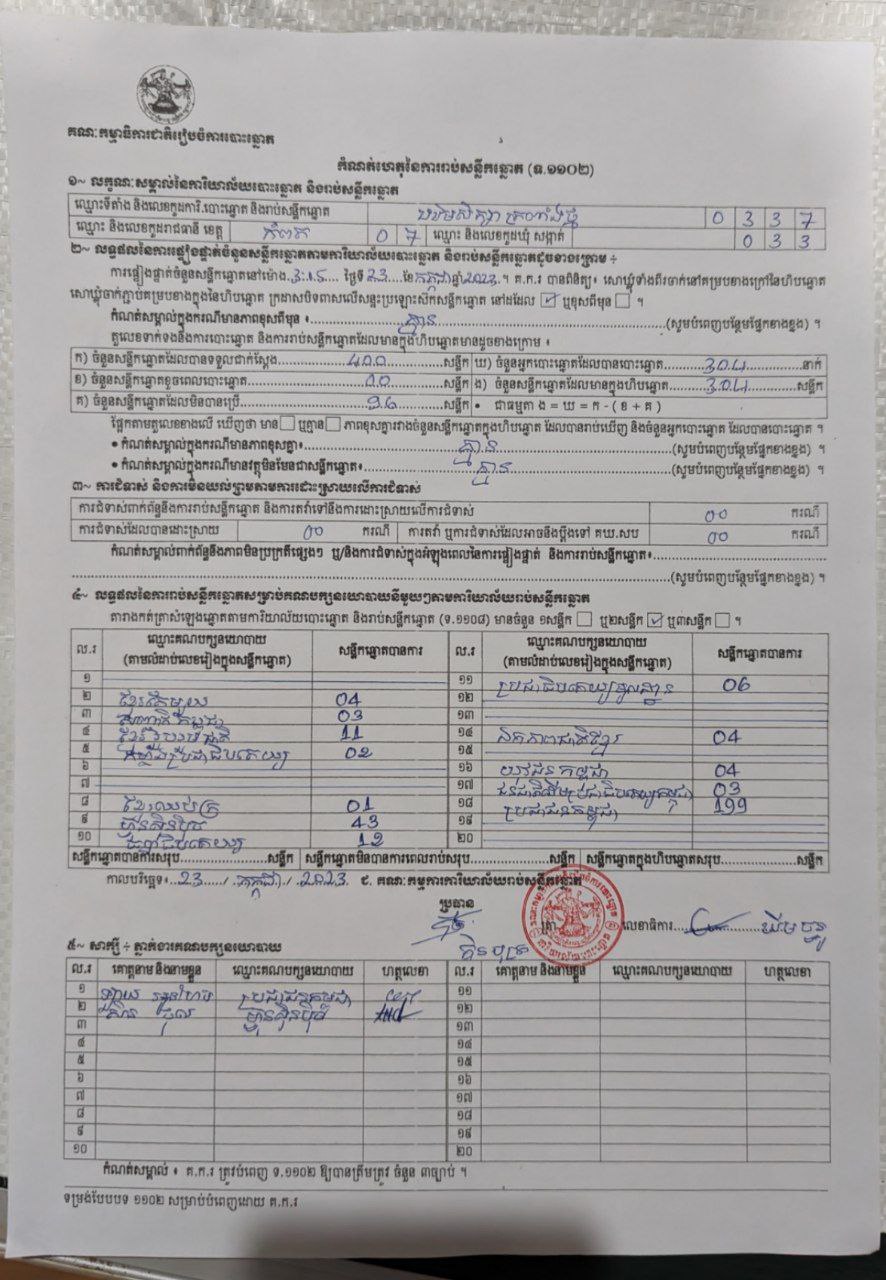 គណៈកម្មាធិការជាតិរៀបចំការបោះឆ្នោត
កំណត់ហេតុនៃការរាប់សន្លឹកឆ្នោត (ទ.១១០២)
១~ លក្ខណៈសម្គាល់នៃការិយាល័យបោះឆ្នោត និងរាប់សន្លឹកឆ្នោត
ឈ្មោះទីតាំង និងលេខកូដការិ.បោះឆ្នោត និងរាប់សន្លឹកឆ្នោត 0 3 3 7
ឈ្មោះ និងលេខកូដរាជធានី ខេត្ត កំពត 0 7 ឈ្មោះ និងលេខកូដឃុំ សង្កាត់ 0 3 3
២~ លទ្ធផលនៃការផ្ទៀងផ្ទាត់ចំនួនសន្លឹកឆ្នោតតាមការិយាល័យបោះឆ្នោត និងរាប់សន្លឹកឆ្នោតដូចខាងក្រោម ÷
ការផ្ទៀងផ្ទាត់ចំនួនសន្លឹកឆ្នោតនៅម៉ោង 3:15 ថ្ងៃទី 23 ខែ កក្កដា ឆ្នាំ 2023 ។ គ.ក.រ បានពិនិត្យ៖ សោឃ្លុំទាំងពីរចាក់នៅគម្របខាងក្រៅនៃហិបឆ្នោត
សោឃ្លុំចាក់ភ្ជាប់គម្របខាងក្នុងនៃហិបឆ្នោត ក្រដាសបិទពាសលើសន្ទះប្រឡោះស៊កសន្លឹកឆ្នោត នៅដដែល ☑ ឬខុសពីមុន ☐ ។
កំណត់សម្គាល់ក្នុងករណីមានភាពខុសពីមុន ៖ គ្មាន (សូមបំពេញបន្ថែមផ្នែកខាងខ្នង) ។
តួលេខទាក់ទងនឹងការបោះឆ្នោត និងការរាប់សន្លឹកឆ្នោតដែលមានក្នុងហិបឆ្នោតមានដូចខាងក្រោម ៖
ក) ចំនួនសន្លឹកឆ្នោតដែលបានទទួលជាក់ស្តែង 400 សន្លឹក ឃ) ចំនួនអ្នកបោះឆ្នោតដែលបានបោះឆ្នោត 304 នាក់
ខ) ចំនួនសន្លឹកឆ្នោតខូចពេលបោះឆ្នោត 00 សន្លឹក ង) ចំនួនសន្លឹកឆ្នោតដែលមានក្នុងហិបឆ្នោត 304 សន្លឹក
គ) ចំនួនសន្លឹកឆ្នោតដែលមិនបានប្រើ 96 សន្លឹក • ជាធម្មតា ង = ឃ = ក - ( ខ + គ )
ផ្អែកតាមតួលេខខាងលើ ឃើញថា មាន ☐ ឬគ្មាន ☐ ភាពខុសគ្នារវាងចំនួនសន្លឹកឆ្នោតក្នុងហិបឆ្នោត ដែលបានរាប់ឃើញ និងចំនួនអ្នកបោះឆ្នោត ដែលបានបោះឆ្នោត ។
• កំណត់សម្គាល់ក្នុងករណីមានភាពខុសគ្នា៖ គ្មាន (សូមបំពេញបន្ថែមផ្នែកខាងខ្នង) ។
• កំណត់សម្គាល់ក្នុងករណីមានវត្ថុមិនមែនជាសន្លឹកឆ្នោត៖ គ្មាន (សូមបំពេញបន្ថែមផ្នែកខាងខ្នង) ។
៣~ ការជំទាស់ និងការមិនយល់ព្រមតាមការដោះស្រាយលើការជំទាស់
ការជំទាស់ពាក់ព័ន្ធនឹងការរាប់សន្លឹកឆ្នោត និងការតវ៉ាទៅនឹងការដោះស្រាយលើការជំទាស់ 00 ករណី
ការជំទាស់ដែលបានដោះស្រាយ 00 ករណី ការតវ៉ា ឬការជំទាស់ដែលអាចនឹងប្តឹងទៅ គឃ.សប 00 ករណី
កំណត់សម្គាល់ពាក់ព័ន្ធនឹងភាពមិនប្រក្រតីផ្សេងៗ ឬ/និងការជំទាស់ក្នុងអំឡុងពេលនៃការផ្ទៀងផ្ទាត់ និងការរាប់សន្លឹកឆ្នោត៖
(សូមបំពេញបន្ថែមផ្នែកខាងខ្នង) ។
៤~ លទ្ធផលនៃការរាប់សន្លឹកឆ្នោតសម្រាប់គណបក្សនយោបាយនីមួយៗតាមការិយាល័យរាប់សន្លឹកឆ្នោត
តារាងកត់ត្រាសំឡេងឆ្នោតតាមការិយាល័យបោះឆ្នោត និងរាប់សន្លឹកឆ្នោត (ទ.១១០៨) មានចំនួន ១សន្លឹក ☐ ឬ២សន្លឹក ☑ ឬ៣សន្លឹក ☐ ។
ល.រ ឈ្មោះគណបក្សនយោបាយ (តាមលំដាប់លេខរៀងក្នុងសន្លឹកឆ្នោត) សន្លឹកឆ្នោតបានការ ល.រ ឈ្មោះគណបក្សនយោបាយ (តាមលំដាប់លេខរៀងក្នុងសន្លឹកឆ្នោត) សន្លឹកឆ្នោតបានការ
១ ១១ ប្រជាធិបតេយ្យមូលដ្ឋាន 06
២ ខ្មែរតែមួយ 04 ១២
៣ 03 ១៣
៤ 11 ១៤ ឯកភាពជាតិខ្មែរ 04
៥ 02 ១៥
៦ ១៦ យុវជនកម្ពុជា 04
៧ ១៧ ជនជាតិដើមប្រជាធិបតេយ្យកម្ពុជា 03
៨ ខ្មែរឈប់ក្រ 01 ១៨ ប្រជាជនកម្ពុជា 199
៩ ហ្វ៊ុនស៊ិនប៉ិច 43 ១៩
១០ 12 ២០
សន្លឹកឆ្នោតបានការសរុប សន្លឹក សន្លឹកឆ្នោតមិនបានការពេលរាប់សរុប សន្លឹក សន្លឹកឆ្នោតក្នុងហិបឆ្នោតសរុប សន្លឹក
កាលបរិច្ឆេទ៖ 23 / កក្កដា / 2023 ៩. គណៈកម្មការការិយាល័យរាប់សន្លឹកឆ្នោត
ប្រធាន
ត្រា លេខាធិការ
៥~ សាក្សី ÷ ភ្នាក់ងារគណបក្សនយោបាយ
ល.រ គោត្តនាម និងនាមខ្លួន ឈ្មោះគណបក្សនយោបាយ ហត្ថលេខា ល.រ គោត្តនាម និងនាមខ្លួន ឈ្មោះគណបក្សនយោបាយ ហត្ថលេខា
១ ប្រជាជនកម្ពុជា ១១
២ ហ្វ៊ុនស៊ិនប៉ិច ១២
៣ ១៣
៤ ១៤
៥ ១៥
៦ ១៦
៧ ១៧
៨ ១៨
៩ ១៩
១០ ២០
កំណត់សម្គាល់ ៖ គ.ក.រ ត្រូវបំពេញ ទ.១១០២ ឱ្យបានត្រឹមត្រូវ ចំនួន ៣ច្បាប់ ។
ទម្រង់បែបបទ ១១០២ សម្រាប់បំពេញដោយ គ.ក.រ